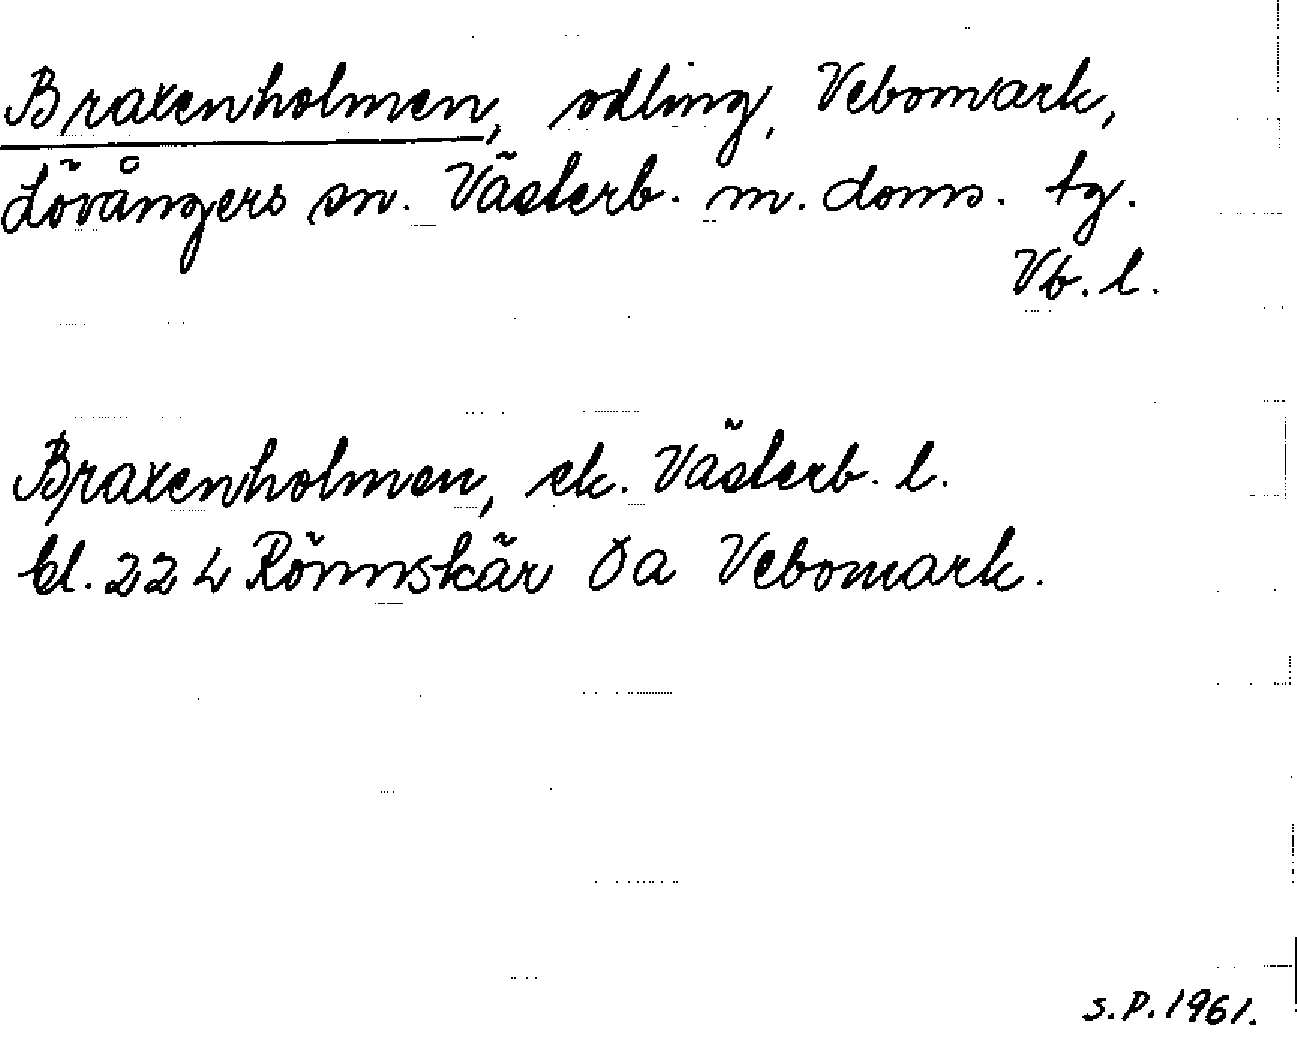 Braxenholmen, odling, Vebomark,
Lövångers sn. Västerb. m. doms. tg.
Vb. l.
Braxenholmen, ek. Västerb. l.
bl. 22 L Rönnskär Öa Vebomark.
S.P. 1961.